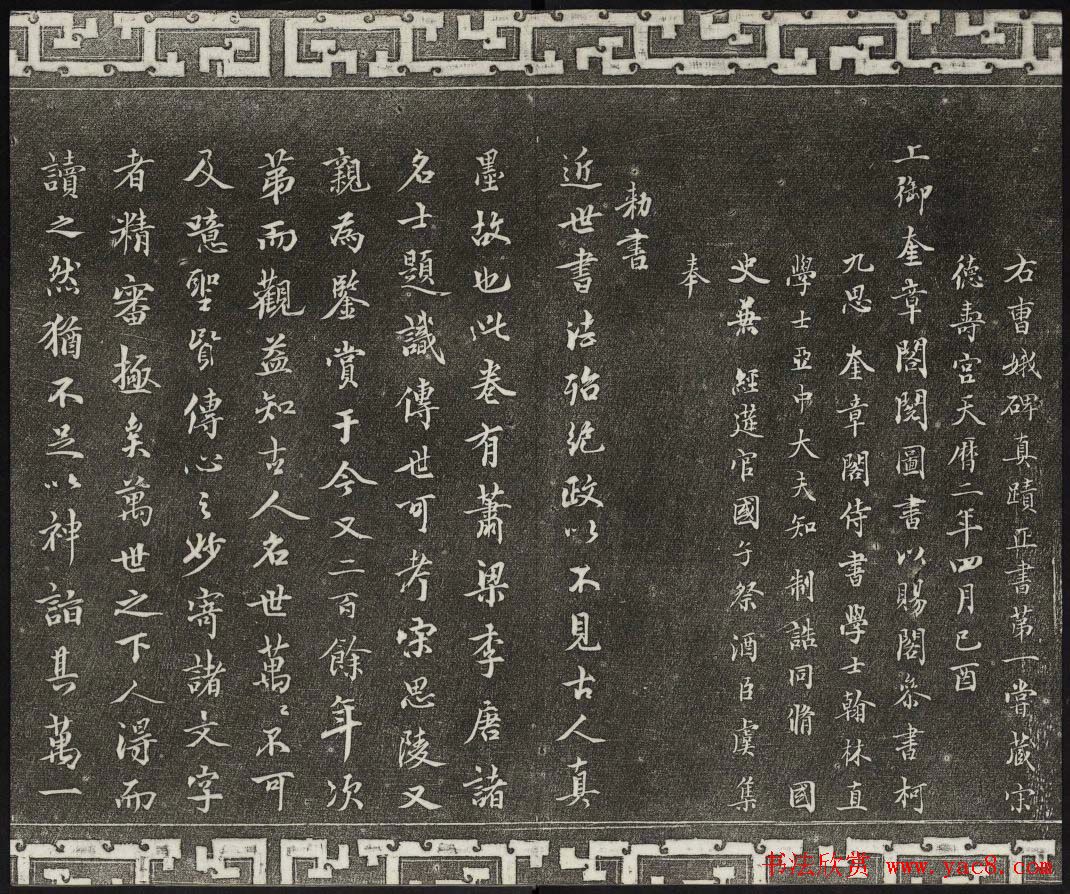 右曹娥碑真蹟正書第一嘗藏宋
德壽宮天曆二年四月己酉
上御奎章閣閱圖書以賜閣參書柯
九思奎章閣侍書學士翰林直
學士亞中大夫知制誥同脩國
史兼經筵官國子祭酒臣虞集
奉
勑書
近世書法殆絕政以不見古人真
墨故也此卷有蕭梁李唐諸
名士題識傳世可考宋思陵又
親為鑒賞于今又二百餘年次
苐而觀益知古人名世萬萬不可
及噫聖賢傳心之妙寄諸文字
者精審極矣萬世之下人淂而
讀之然猶不足以神詣其萬一
书法欣赏 www.yac8.com